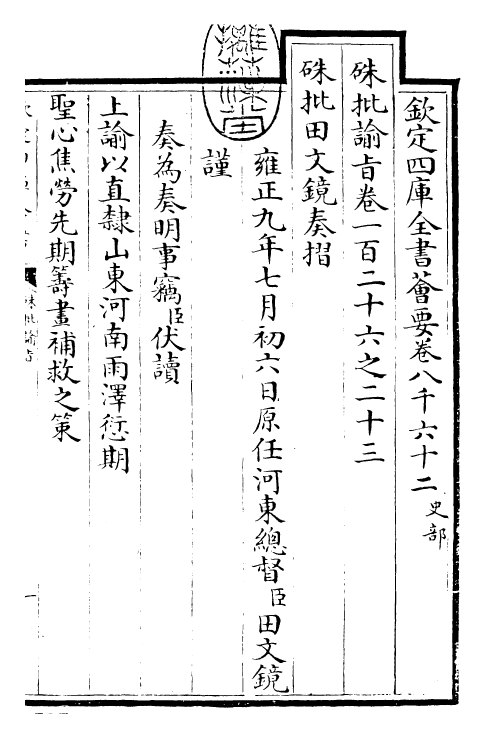 欽定四庫全書薈要卷八千六十二 史部
硃批諭旨卷一百二十六之二十三
硃批田文鏡奏摺
雍正九年七月初六日原任河東總督臣田文鏡
謹
奏為奏明事竊臣伏讀
上諭以直隸山東河南雨澤愆期
聖心焦勞先期籌畫補救之策
硃批諭旨
一